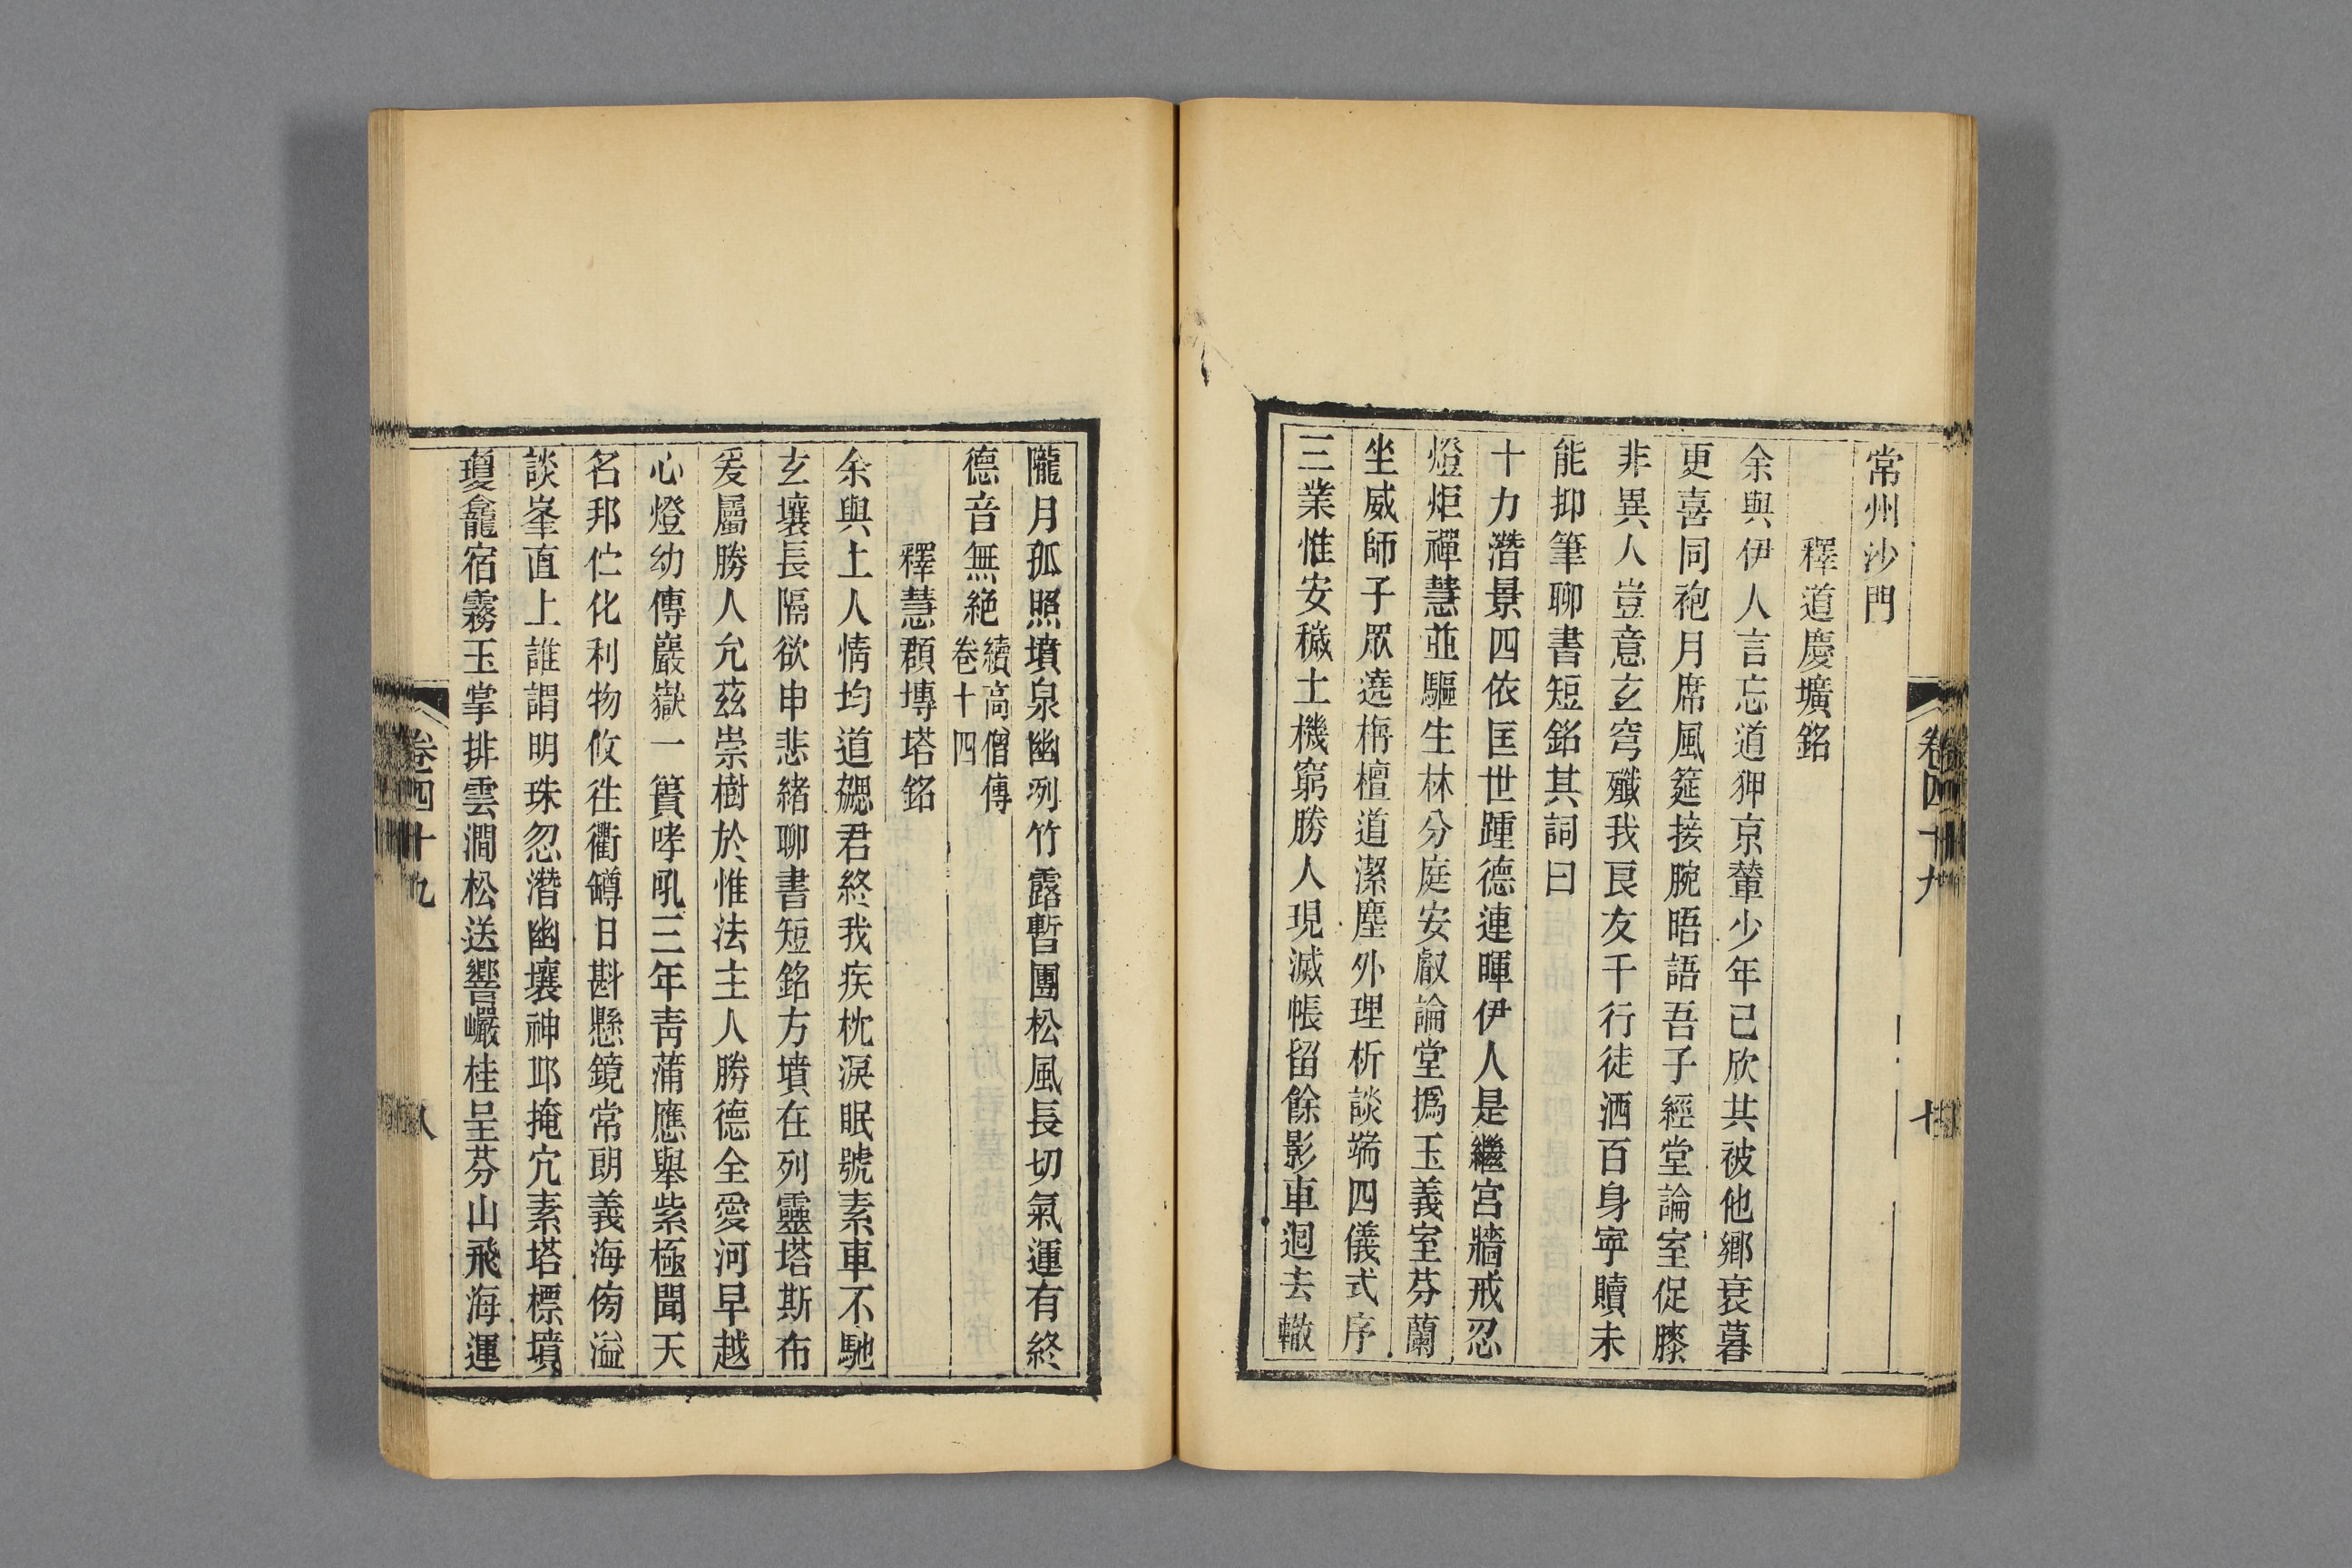 常州沙門
釋道慶壙銘
余與伊人言忘道狎京輦少年已欣共被他鄉衰暮
更喜同袍月席風筵接腕晤語吾子經堂論室促膝
非異人豈意玄穹殲我良友千行徒洒百身寧贖未
能抑筆聊書短銘其詞曰
十力潛景四依匡世踵德連暉伊人是繼宮牆戒忍
燈炬禪慧並驅生林分庭安叡論堂撝玉義室芬蘭
坐威師子眾遶栴檀道潔塵外理析談端四儀式序
三業惟安穢土機窮勝人現滅帳留餘影車迴去轍
卷四十九
隴月孤照墳泉幽冽竹露暫團松風長切氣運有終
德音無絕續高僧傳卷十四
釋慧頵塼塔銘
余與上人情均道勰君終我疾枕淚眠號素車不馳
玄壤長隔欲申悲緒聊書短銘方墳在列靈塔斯布
爰屬勝人允茲崇樹於惟法主人勝德全愛河早越
心燈幼傳巖嶽一簣哮吼三年青蒲應舉紫極聞天
名邦伫化利物攸往衢罇日斟懸鏡常朗義海傍溢
談峯直上誰謂明珠忽潛幽壤神邛掩穴素塔標墳
瓊龕宿霧玉掌排雲澗松送響巖桂呈芬山飛海運
卷四十九
八